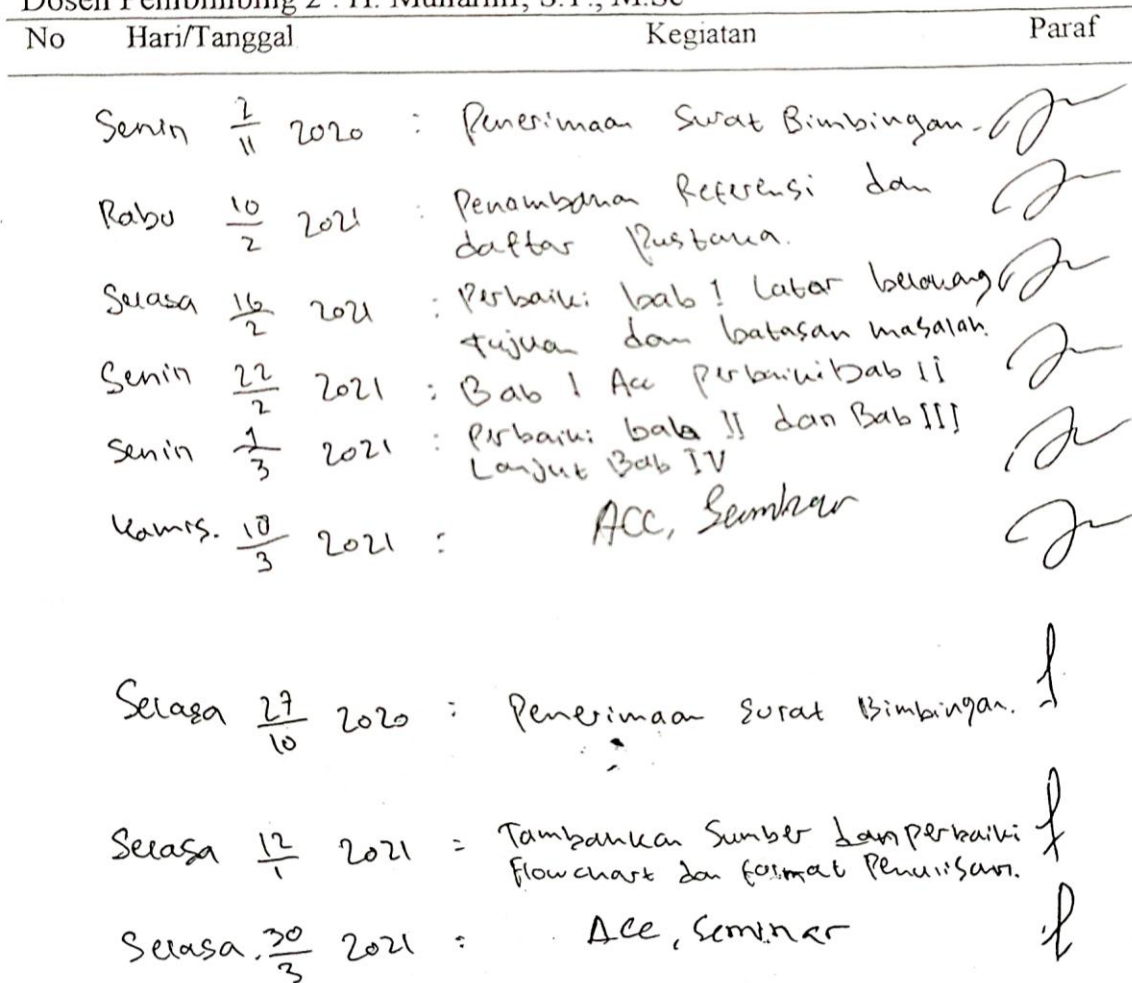 Dosen Pembimbing 2 : H. Muharnif, S.T., M.Sc
No Hari/Tanggal Kegiatan Paraf
Senin 2/11 2020 : Penerimaan Surat Bimbingan.
Rabu 10/2 2021 : Penambahan Referensi dan
daftar Pustaka.
Selasa 16/2 2021 : Perbaiki bab I Latar belakang
tujuan dan batasan masalah.
Senin 22/2 2021 : Bab I Acc perbaiki bab II
Senin 1/3 2021 : Perbaiki bab II dan Bab III
Lanjut Bab IV
Kamis. 18/3 2021 : ACC, Seminar
Selasa 27/10 2020 : Penerimaan Surat Bimbingan.
Selasa 12/1 2021 : Tambahkan Sumber dan perbaiki
Flowchart dan format Penulisan.
Selasa. 30/3 2021 : Acc, Seminar